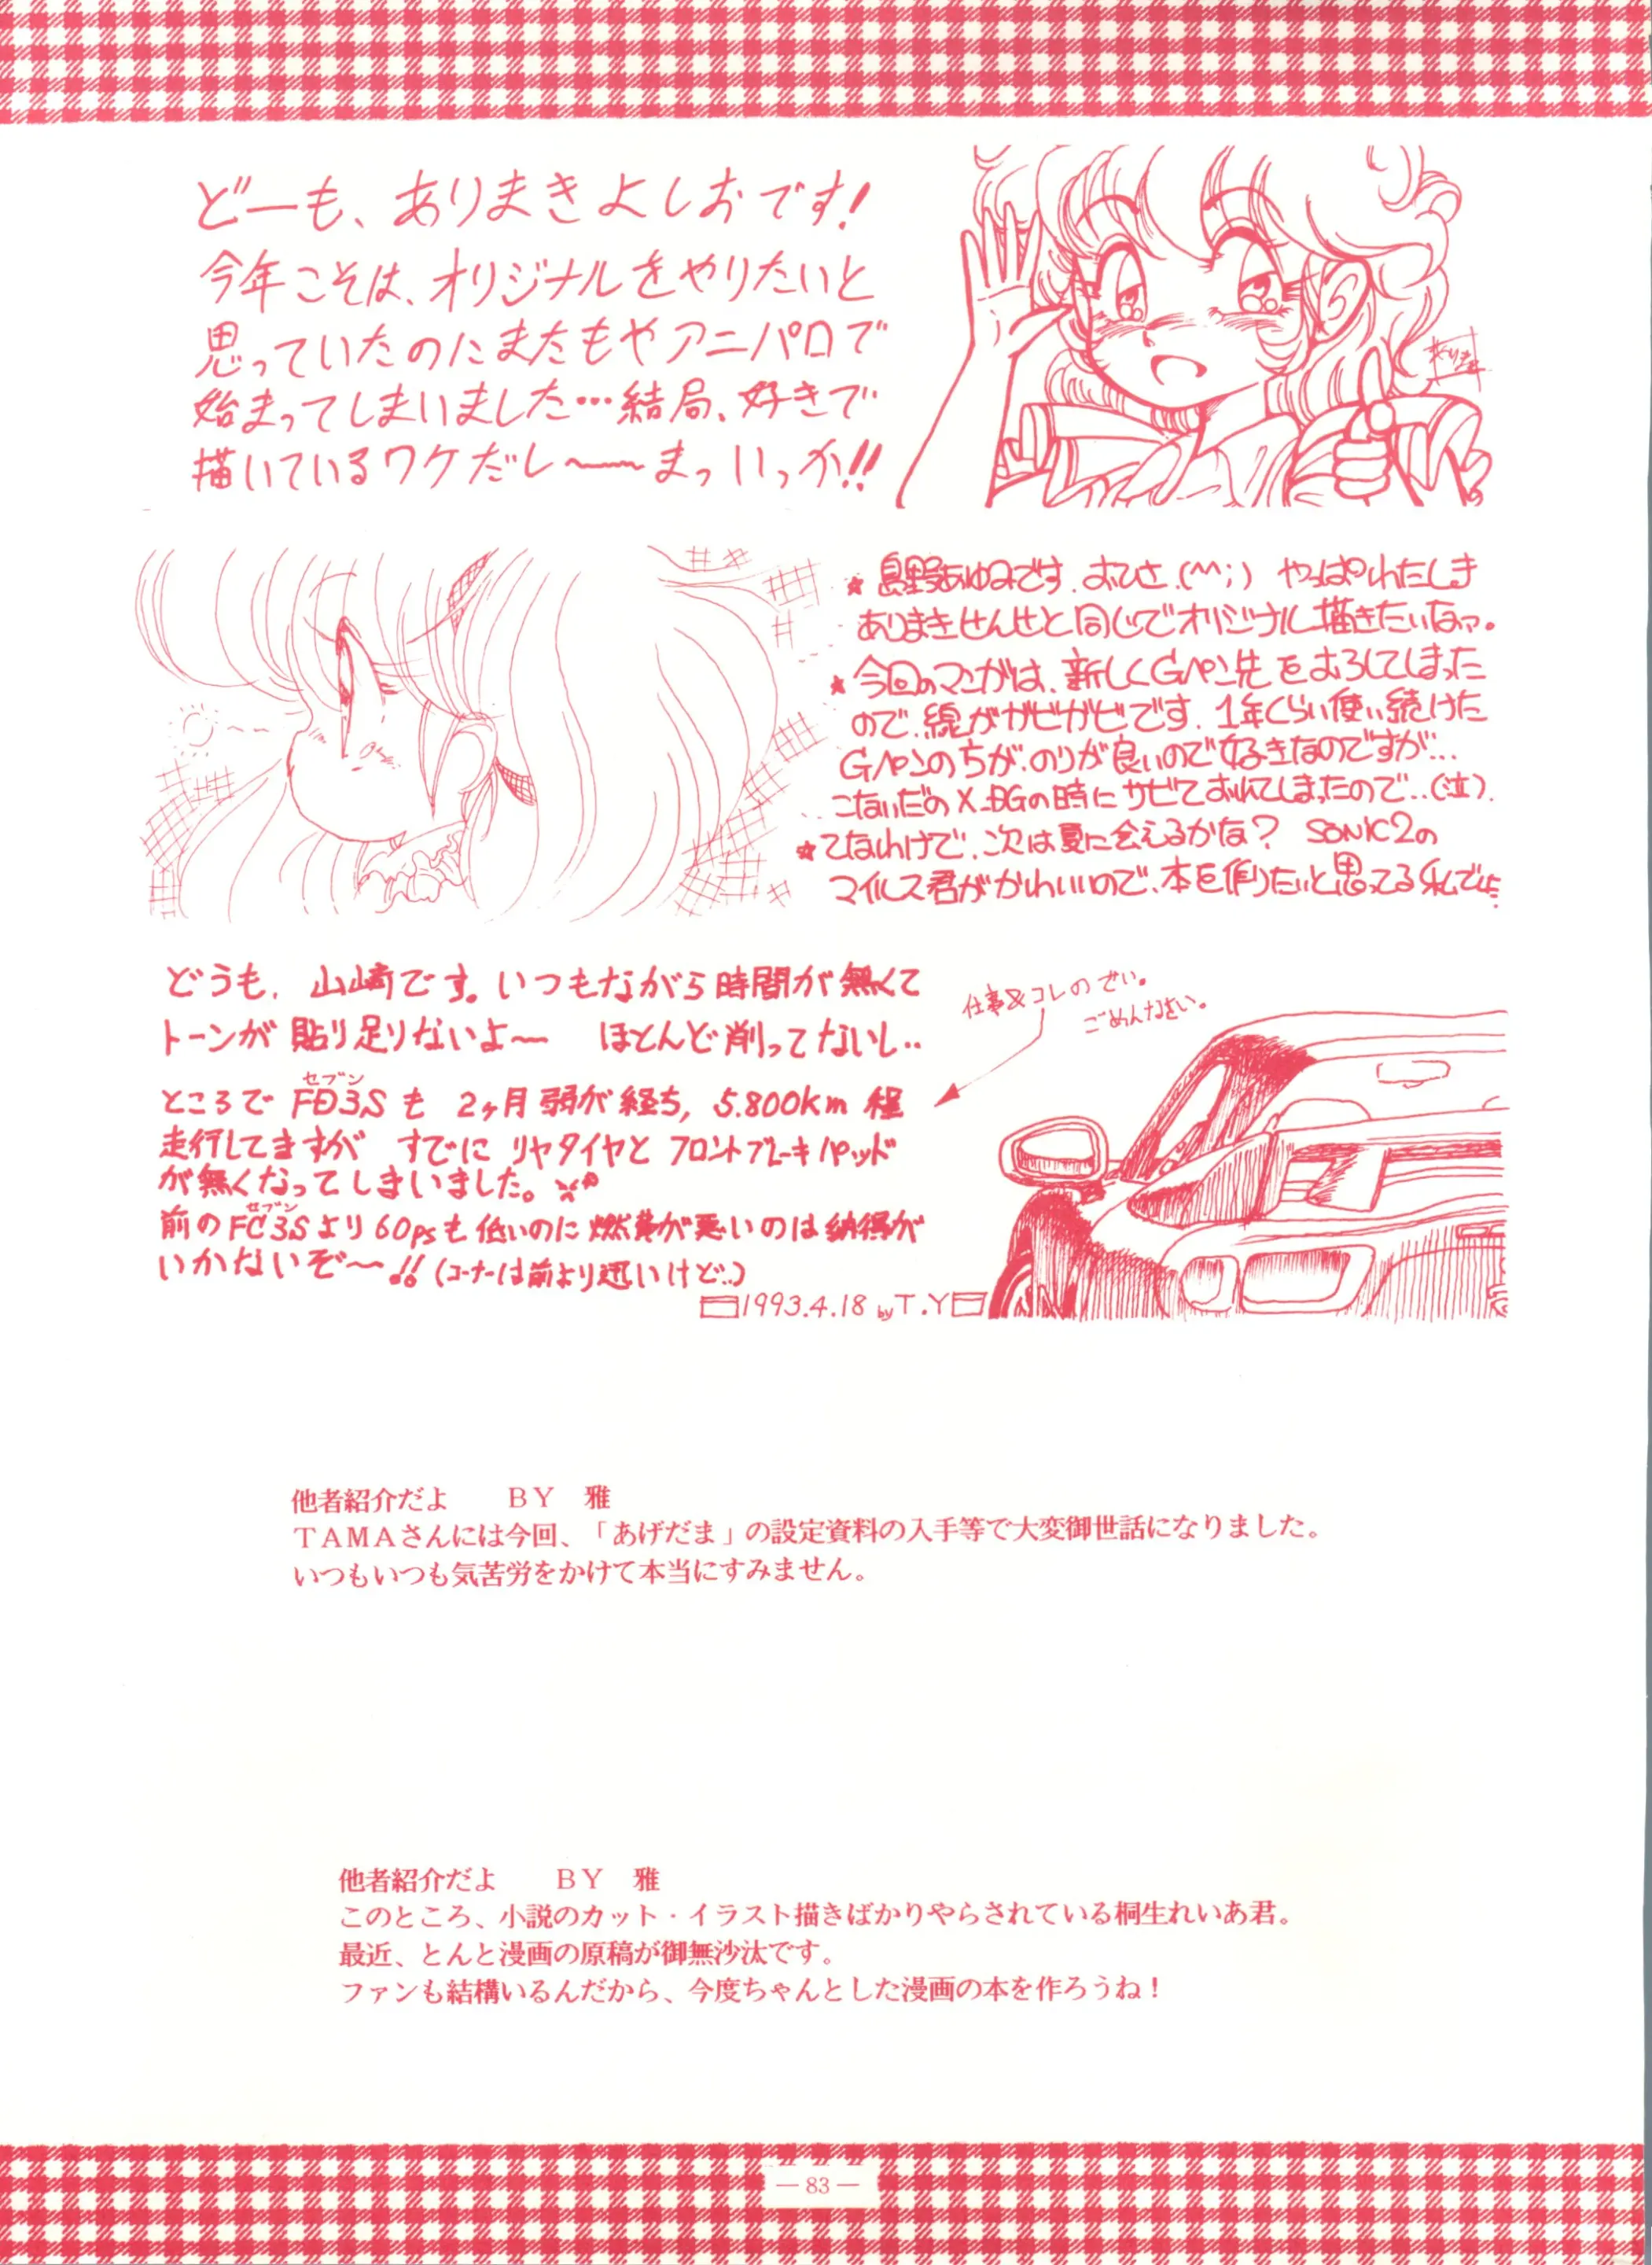 どーも、ありまきよしおです!
今年こそは、オリジナルをやりたいと
思っていたのにまたもやアニパロで
始まってしまいました…結局、好きで
描いているワケだし〜〜まっいっか!!
ありまき
★ 島野あゆみです.おひさ.(^^;) やっぱりわたしも
ありまきせんせと同じでオリジナル描きたいなァ。
★今回のマンガは、新しくGペン先をおろしてしまった
ので、線がガビガビです.1年くらい使い続けた
Gペンの方が、のりが良いので好きなのですが...
こないだのX-BGの時にサビておれてしまったので..(泣).
★てなわけで、次は夏に会えるかな? SONIC2の
マイルス君がかわいいので、本を作りたいと思ってる私でした.
どうも、山崎です。いつもながら時間が無くて
トーンが貼り足りないよ〜 ほとんど削ってないし..
仕事&コレのせい。
ごめんなさい。
セブン
ところでFD3Sも 2ヶ月弱が経ち, 5.800km 程
走行してますが すでに リヤタイヤと フロントブレーキパッド
が無くなってしまいました。
セブン
前のFC3Sより60psも低いのに燃費が悪いのは納得が
いかないぞ〜!! (コーナーは前より速いけど..)
1993.4.18 by T.Y
他者紹介だよ　　BY　雅
TAMAさんには今回、「あげだま」の設定資料の入手等で大変御世話になりました。
いつもいつも気苦労をかけて本当にすみません。
他者紹介だよ　　BY　雅
このところ、小説のカット・イラスト描きばかりやらされている桐生れいあ君。
最近、とんと漫画の原稿が御無沙汰です。
ファンも結構いるんだから、今度ちゃんとした漫画の本を作ろうね!
— 83 —